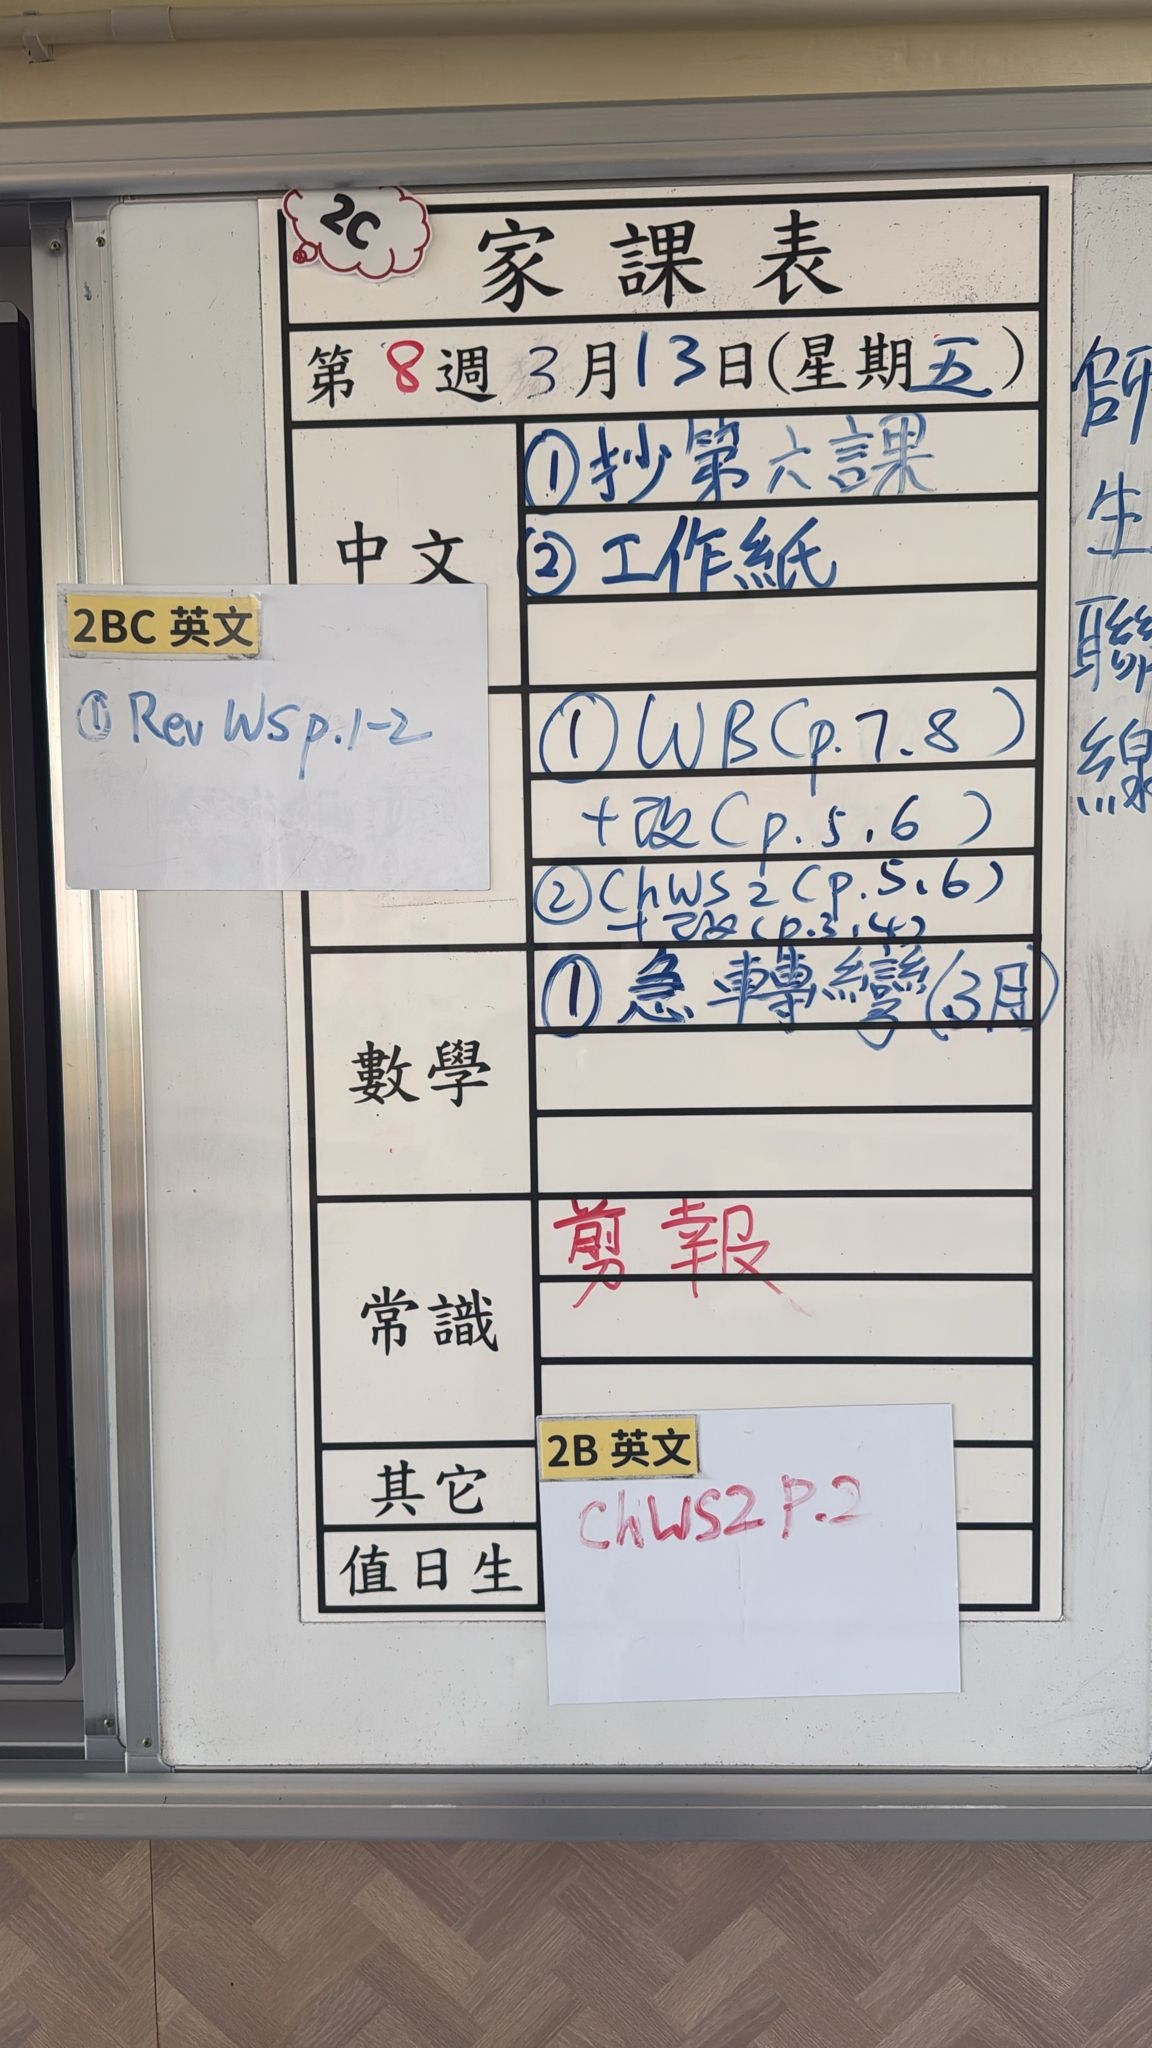 2C
家課表
第8週3月13日(星期五)
中文
①抄第六課
②工作紙
2BC 英文
① Rev WS p.1-2
① WB(p.7.8)
+改(p.5.6)
② ChWS2(p.5.6)
+改(p.3.4)
數學
①急轉彎(3月)
常識
剪報
其它
值日生
2B 英文
ChWS2 P.2
師
生
聯
線